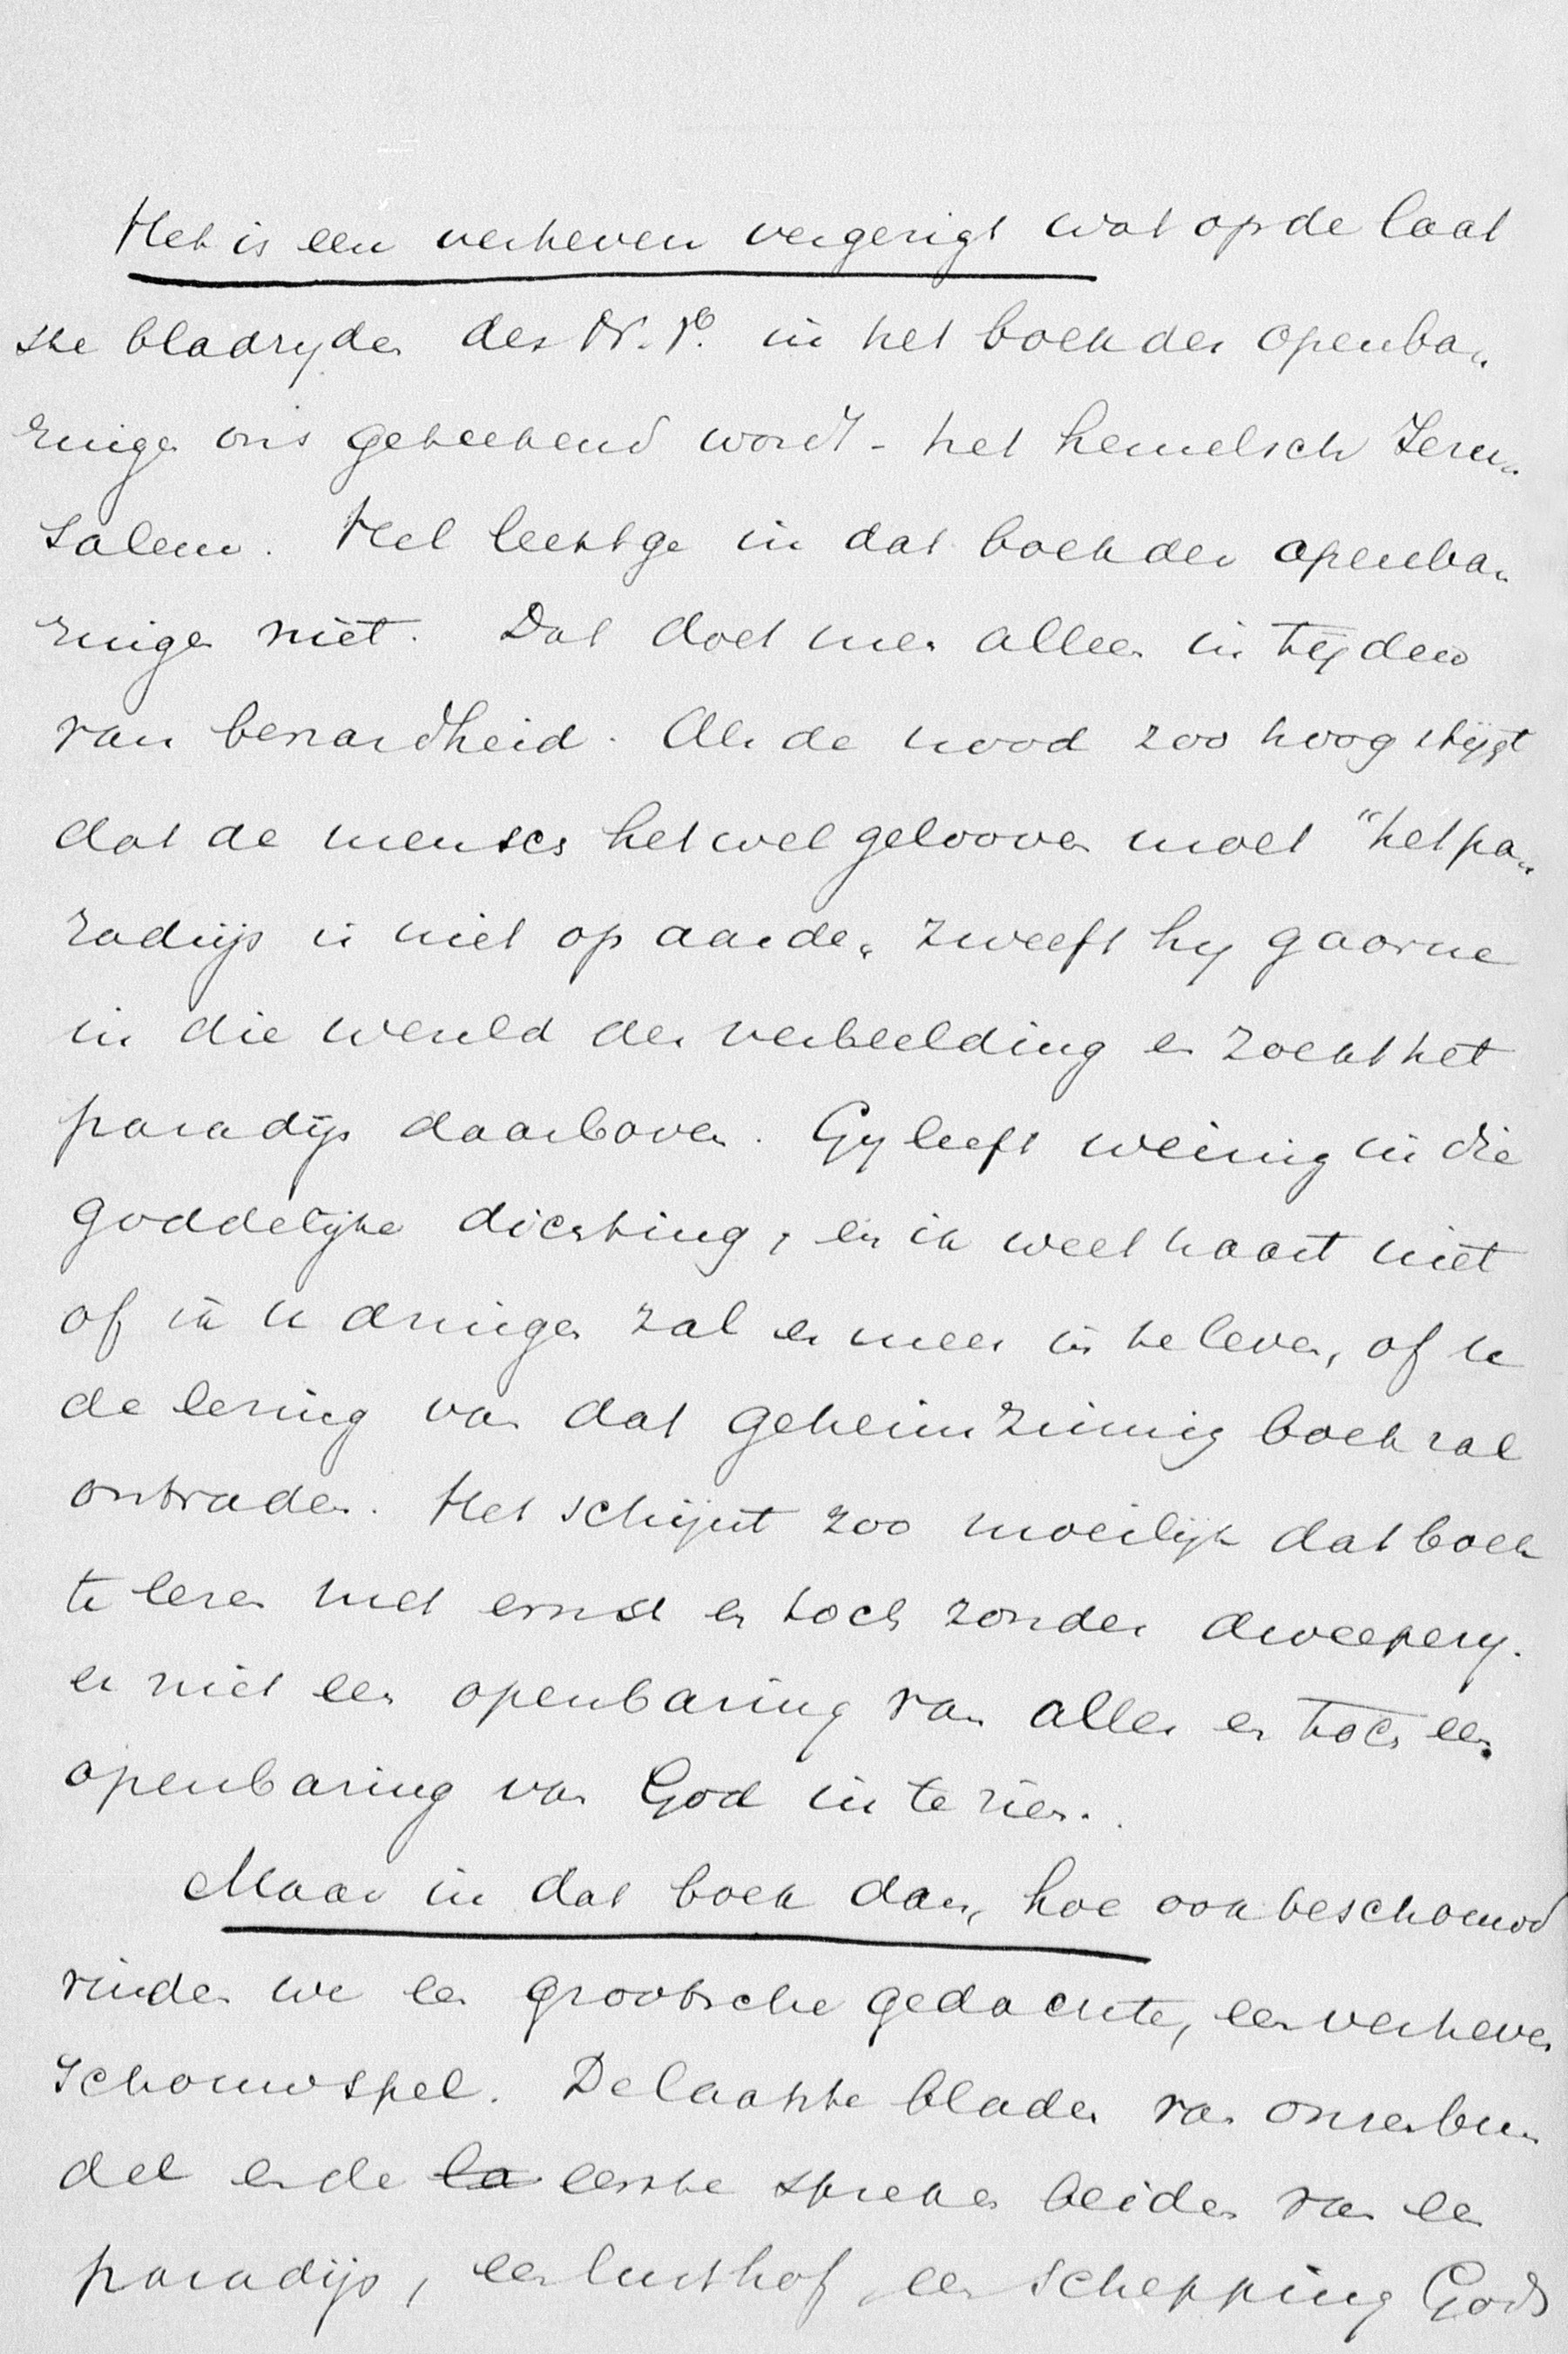 Het is een verheven vergezigt wat op de laat
ste bladzijden des N. Ts. in het boek der openba„
ringen ons geteekend wordt - het hemelsch Jeru„
salem. Veel leest ge in dat boek der openba„
ringen niet. Dat doet men alleen in tijden
van benardheid. Als de nood zoo hoog stijgt
dat de mensch het wel gelooven moet "het pa„
radijs is niet op aarde„ zweeft hij gaarne
in die wereld der verbeelding en zoekt het
paradijs daarboven. Gij leeft weinig in die
goddelijke dichting, en ik weet haast niet
of ik u dringen zal er meer in te leven, of u
de lezing van dat geheimzinnig boek zal
ontraden. Het schijnt zoo moeilijk dat boek
te lezen met ernst en toch zonder dweeperij.
er niet een openbaring van alles en toch een
openbaring van God in te zien.
Maar in dat boek dan, hoe ook beschouwd
vinden we een grootsche gedachte, een verheven
schouwspel. De laatste bladen van onzen bun
del en de la eerste spreken beiden van een
paradijs, een lusthof, een schepping Gods